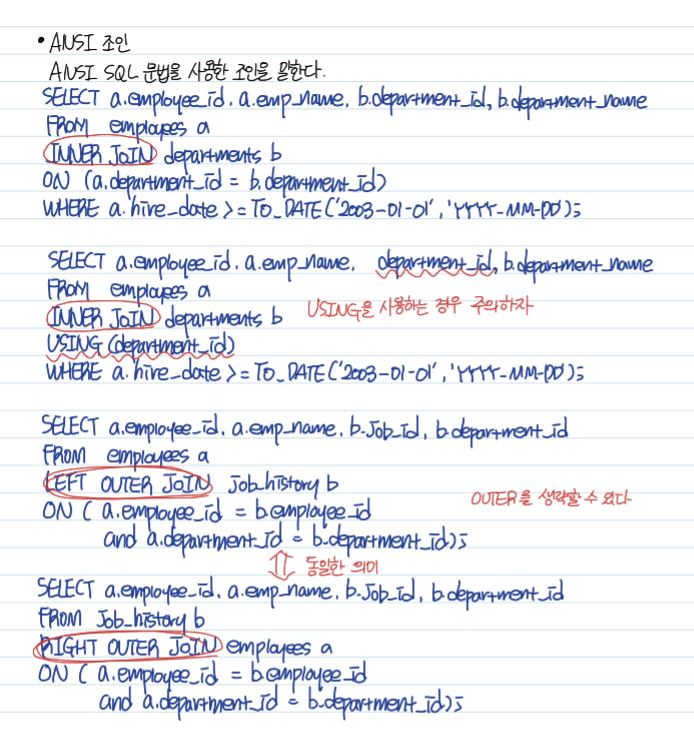 • ANSI 조인
ANSI SQL 문법을 사용한 조인을 말한다.
SELECT a.employee_id. a.emp_name, b.department_id, b.department_name
FROM employees a
INNER JOIN departments b
ON (a.department_id = b.department_id)
WHERE a.hire_date >= TO_DATE('2003-01-01', 'YYYY-MM-DD');
SELECT a.employee_id. a.emp_name, department_id, b.department_name
FROM employees a
INNER JOIN departments b USING을 사용하는 경우 주의하자
USING (department_id)
WHERE a.hire_date >= TO_DATE('2003-01-01', 'YYYY-MM-DD');
SELECT a.employee_id, a.emp_name, b.job_id, b.department_id
FROM employees a
LEFT OUTER JOIN job_history b
OUTER을 생략할 수 있다
ON ( a.employee_id = b.employee_id
and a.department_id = b.department_id);
동일한 의미
SELECT a.employee_id, a.emp_name, b.job_id, b.department_id
FROM job_history b
RIGHT OUTER JOIN employees a
ON ( a.employee_id = b.employee_id
and a.department_id = b.department_id);